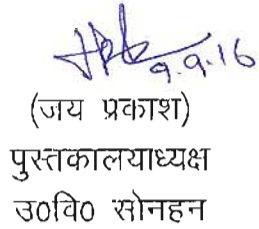 9.9.16
(जय प्रकाश)
पुस्तकालयाध्यक्ष
उ०वि० सोनहन